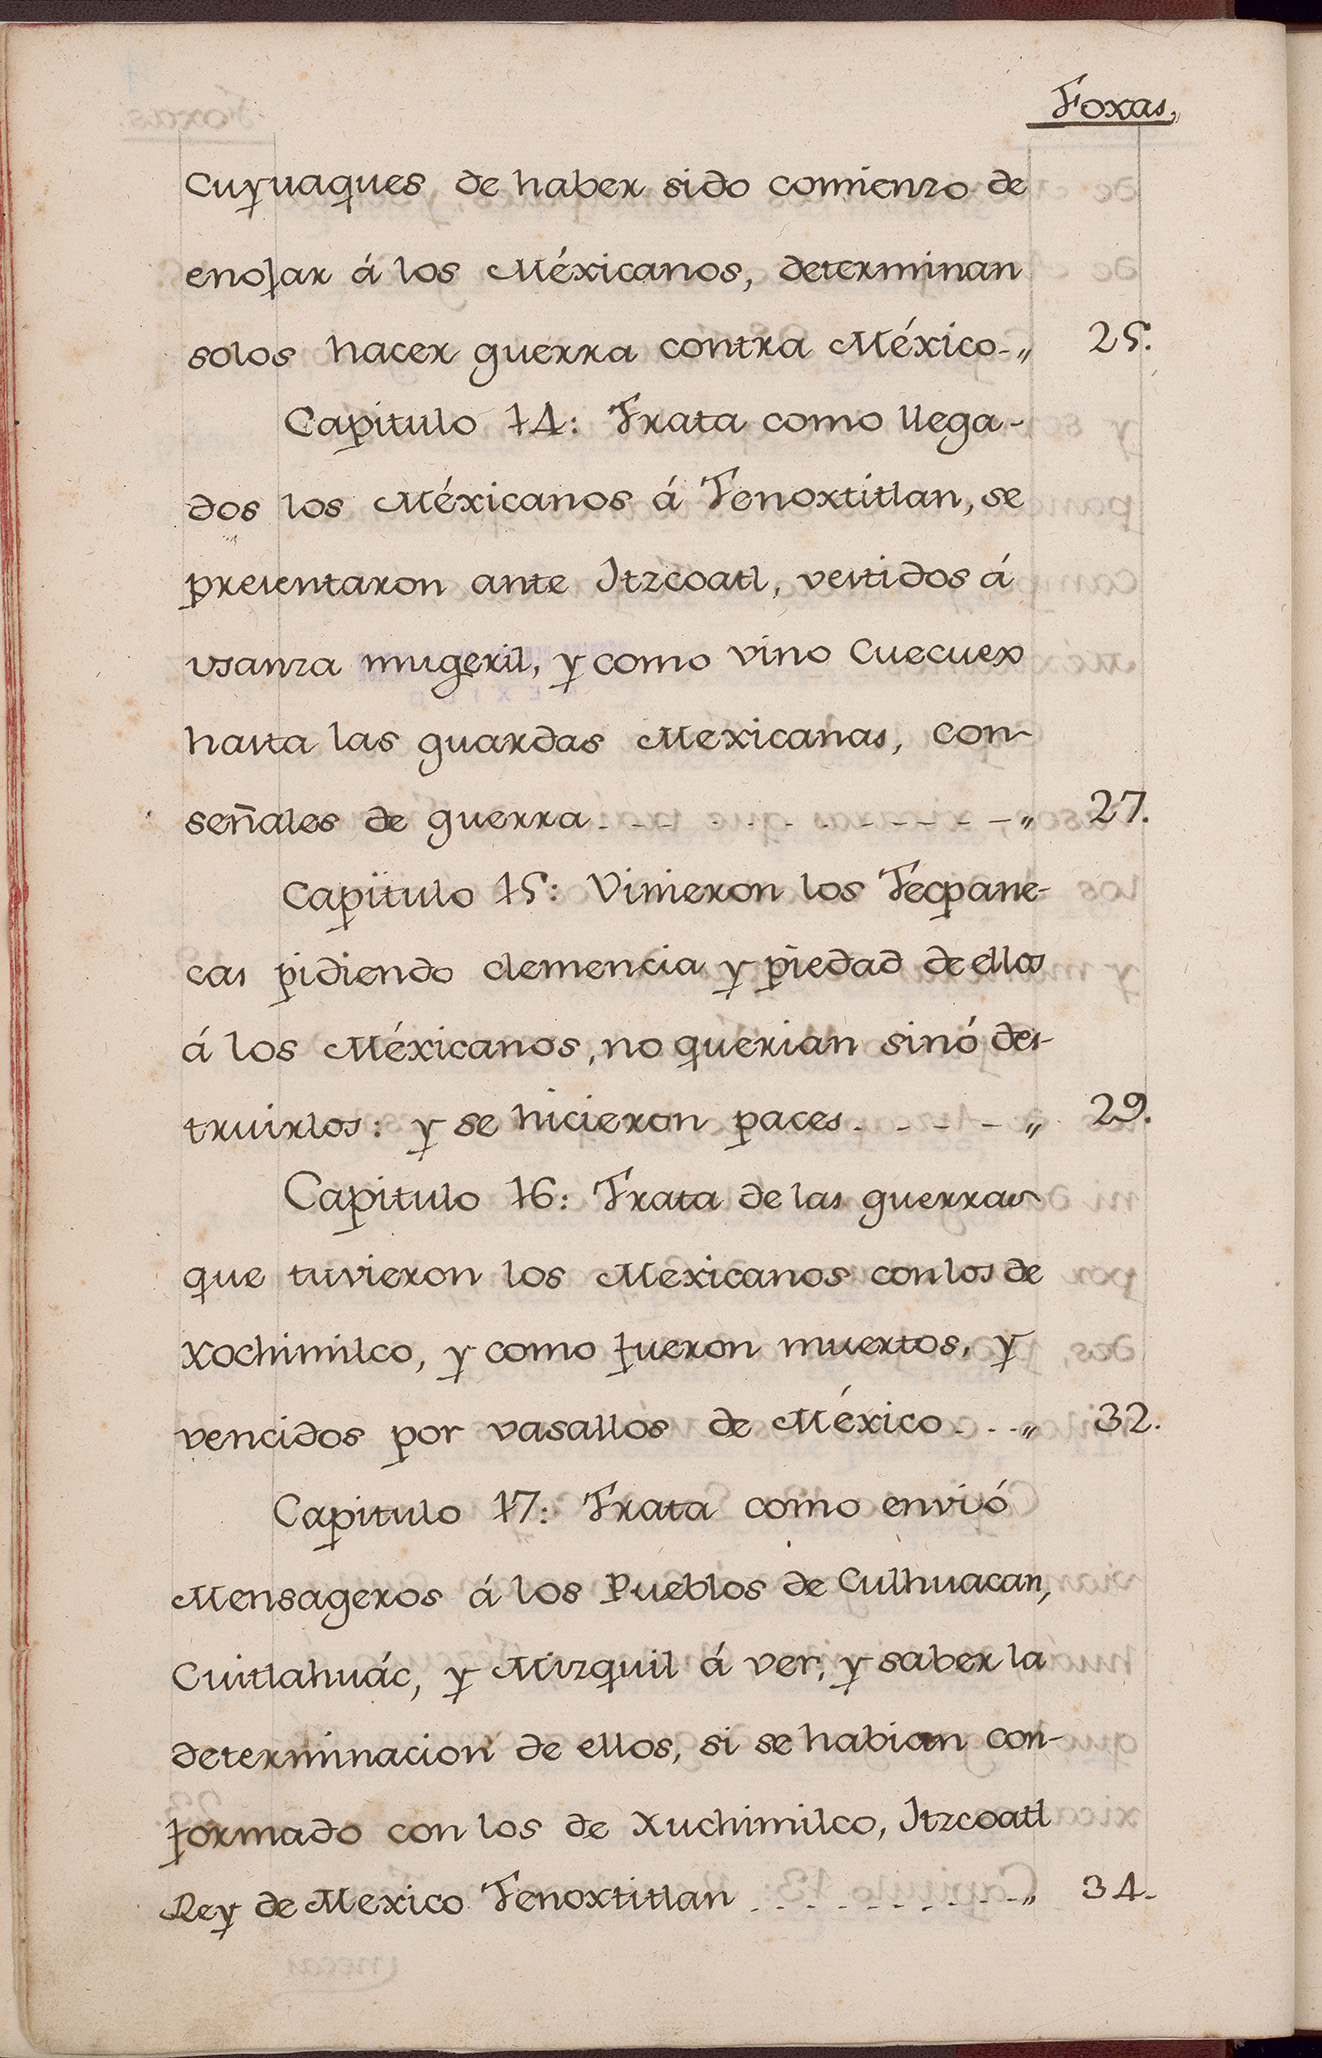 Foxas.
Cuyuaques de haber sido comienzo de
enojar á los Méxicanos, determinan
solos hacer guerra contra México-„ 25.
Capitulo 14: Trata como llega-
dos los Méxicanos á Tenoxtitlan, se
presentaron ante Itzcoatl, vestidos á
usanza mugeril, y como vino Cuecuex
hasta las guardas Mexicanas, con-
señales de guerra - - - - - - - - - „ 27.
Capitulo 15: Vinieron los Tecpane-
cas pidiendo clemencia y piedad de ellos
á los Méxicanos, no querian sinó des-
truirlos: y se hicieron paces - - - - - „ 29.
Capitulo 16: Trata de las guerras
que tuvieron los Mexicanos con los de
Xochimilco, y como fueron muertos, y
vencidos por vasallos de México - - - „ 32.
Capitulo 17: Trata como envió
Mensageros á los Pueblos de Culhuacan,
Cuitlahuác, y Mizquil á ver, y saber la
determinacion de ellos, si se habian con-
formado con los de Xuchimilco, Itzcoatl
Rey de Mexico Tenoxtitlan - - - - - - - - - - „ 34.